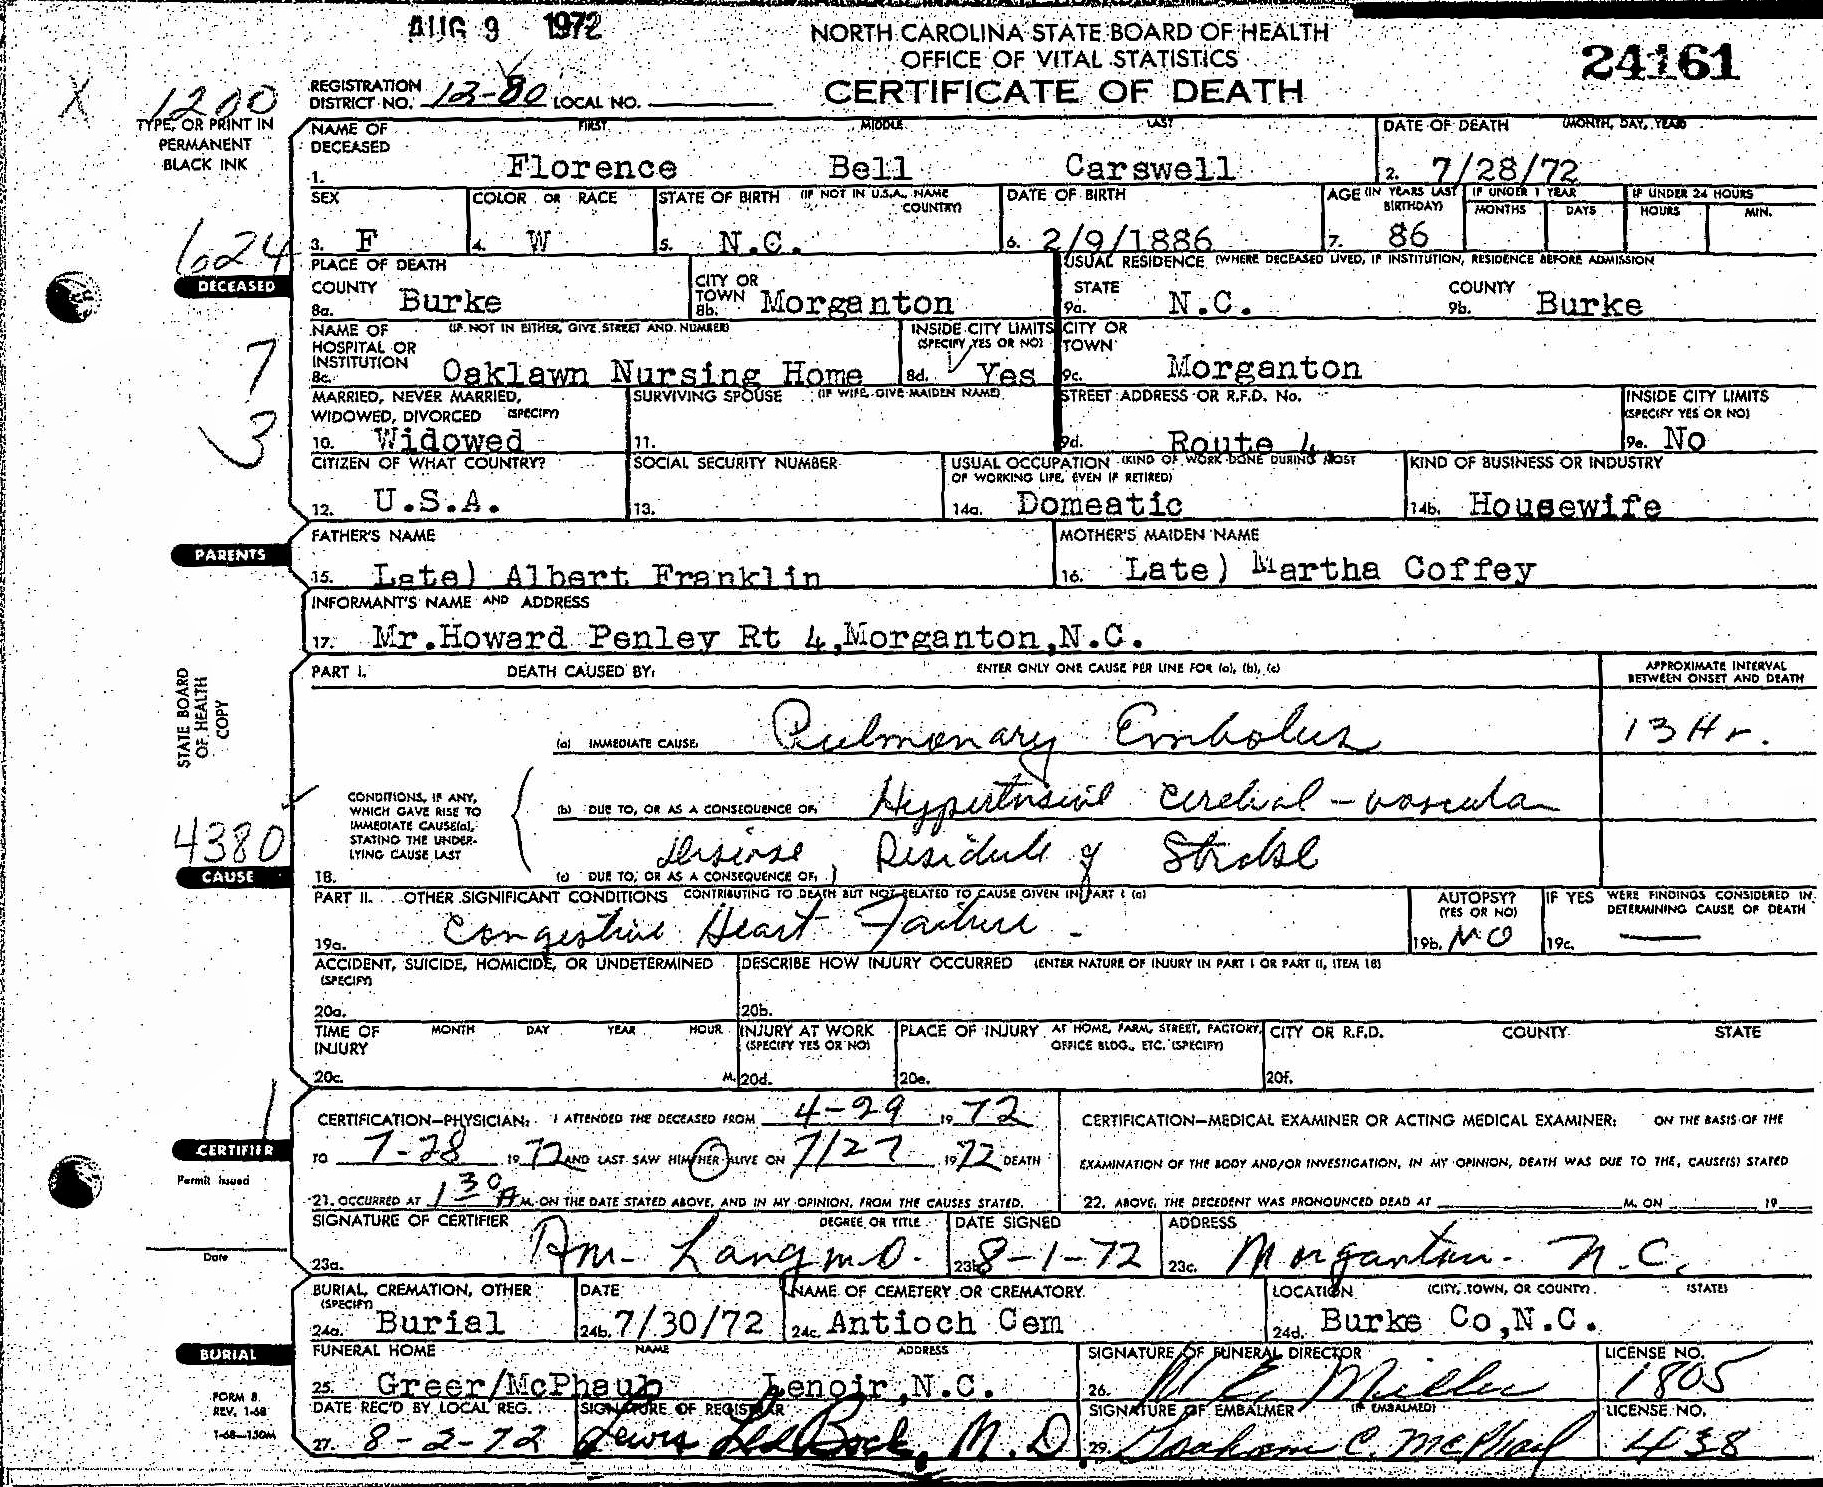 AUG 9 1972
NORTH CAROLINA STATE BOARD OF HEALTH
OFFICE OF VITAL STATISTICS
CERTIFICATE OF DEATH
24161
X
1200
REGISTRATION DISTRICT NO. 12-80 LOCAL NO.
TYPE, OR PRINT IN
PERMANENT
BLACK INK
NAME OF DECEASED FIRST MIDDLE LAST DATE OF DEATH (MONTH, DAY, YEAR)
1. Florence Bell Carswell 2. 7/28/72
SEX COLOR OR RACE STATE OF BIRTH (IF NOT IN U.S.A., NAME COUNTRY) DATE OF BIRTH AGE (IN YEARS LAST BIRTHDAY) IF UNDER 1 YEAR MONTHS DAYS IF UNDER 24 HOURS HOURS MIN.
3. F 4. W 5. N.C. 6. 2/9/1886 7. 86
624
DECEASED
PLACE OF DEATH USUAL RESIDENCE (WHERE DECEASED LIVED, IF INSTITUTION, RESIDENCE BEFORE ADMISSION
COUNTY 8a. Burke CITY OR TOWN 8b. Morganton STATE 9a. N.C. COUNTY 9b. Burke
NAME OF HOSPITAL OR INSTITUTION (IF NOT IN EITHER, GIVE STREET AND NUMBER) INSIDE CITY LIMITS (SPECIFY YES OR NO) CITY OR TOWN
8c. Oaklawn Nursing Home 8d. Yes 9c. Morganton
7
3
MARRIED, NEVER MARRIED, WIDOWED, DIVORCED (SPECIFY) SURVIVING SPOUSE (IF WIFE, GIVE MAIDEN NAME) STREET ADDRESS OR R.F.D. No. INSIDE CITY LIMITS (SPECIFY YES OR NO)
10. Widowed 11. 9d. Route 4 9e. No
CITIZEN OF WHAT COUNTRY? SOCIAL SECURITY NUMBER USUAL OCCUPATION (KIND OF WORK DONE DURING MOST OF WORKING LIFE, EVEN IF RETIRED) KIND OF BUSINESS OR INDUSTRY
12. U.S.A. 13. 14a. Domeatic 14b. Housewife
PARENTS
FATHER'S NAME MOTHER'S MAIDEN NAME
15. Late) Albert Franklin 16. Late) Martha Coffey
INFORMANT'S NAME AND ADDRESS
17. Mr.Howard Penley Rt 4,Morganton,N.C.
STATE BOARD
OF HEALTH
COPY
PART I. DEATH CAUSED BY: ENTER ONLY ONE CAUSE PER LINE FOR (a), (b), (c) APPROXIMATE INTERVAL BETWEEN ONSET AND DEATH
(a) IMMEDIATE CAUSE: Pulmonary Embolus 13 Hr.
CONDITIONS, IF ANY,
WHICH GAVE RISE TO
IMMEDIATE CAUSE(a),
STATING THE UNDER-
LYING CAUSE LAST
(b) DUE TO, OR AS A CONSEQUENCE OF: Hypertensive cerebral-vascular
disease, Residule of Stroke
18. (c) DUE TO, OR AS A CONSEQUENCE OF:
4380
CAUSE
PART II. OTHER SIGNIFICANT CONDITIONS CONTRIBUTING TO DEATH BUT NOT RELATED TO CAUSE GIVEN IN PART I (a) AUTOPSY? (YES OR NO) IF YES WERE FINDINGS CONSIDERED IN DETERMINING CAUSE OF DEATH
19a. Congestive Heart Failure - 19b. NO 19c. —
ACCIDENT, SUICIDE, HOMICIDE, OR UNDETERMINED (SPECIFY) DESCRIBE HOW INJURY OCCURRED (ENTER NATURE OF INJURY IN PART I OR PART II, ITEM 18)
20a. 20b.
TIME OF INJURY MONTH DAY YEAR HOUR INJURY AT WORK (SPECIFY YES OR NO) PLACE OF INJURY AT HOME, FARM, STREET, FACTORY, OFFICE BLDG., ETC. (SPECIFY) CITY OR R.F.D. COUNTY STATE
20c. M. 20d. 20e. 20f.
1
CERTIFIER
Permit issued
Date
CERTIFICATION—PHYSICIAN: I ATTENDED THE DECEASED FROM 4-29 1972
TO 7-28 1972 AND LAST SAW HIM/HER ALIVE ON 7/27 1972 DEATH
21. OCCURRED AT 1 30 A M. ON THE DATE STATED ABOVE, AND IN MY OPINION, FROM THE CAUSES STATED.
CERTIFICATION—MEDICAL EXAMINER OR ACTING MEDICAL EXAMINER: ON THE BASIS OF THE
EXAMINATION OF THE BODY AND/OR INVESTIGATION, IN MY OPINION, DEATH WAS DUE TO THE, CAUSE(S) STATED
22. ABOVE, THE DECEDENT WAS PRONOUNCED DEAD AT M. ON 19
SIGNATURE OF CERTIFIER DEGREE OR TITLE DATE SIGNED ADDRESS
23a. Am. Lang M.D. 23b. 8-1-72 23c. Morganton. N.C.
BURIAL, CREMATION, OTHER (SPECIFY) DATE NAME OF CEMETERY OR CREMATORY LOCATION (CITY, TOWN, OR COUNTY) (STATE)
24a. Burial 24b. 7/30/72 24c. Antioch Cem 24d. Burke Co,N.C.
BURIAL
FUNERAL HOME NAME ADDRESS SIGNATURE OF FUNERAL DIRECTOR LICENSE NO.
25. Greer/McPhaub Lenoir,N.C. 26. W E. Miller 1805
FORM 8
REV. 1-68
1-68—150M
DATE REC'D BY LOCAL REG. SIGNATURE OF REGISTRAR SIGNATURE OF EMBALMER (IF EMBALMED) LICENSE NO.
27. 8-2-72 Bock, M.D. 29. Graham C. McPhail 438